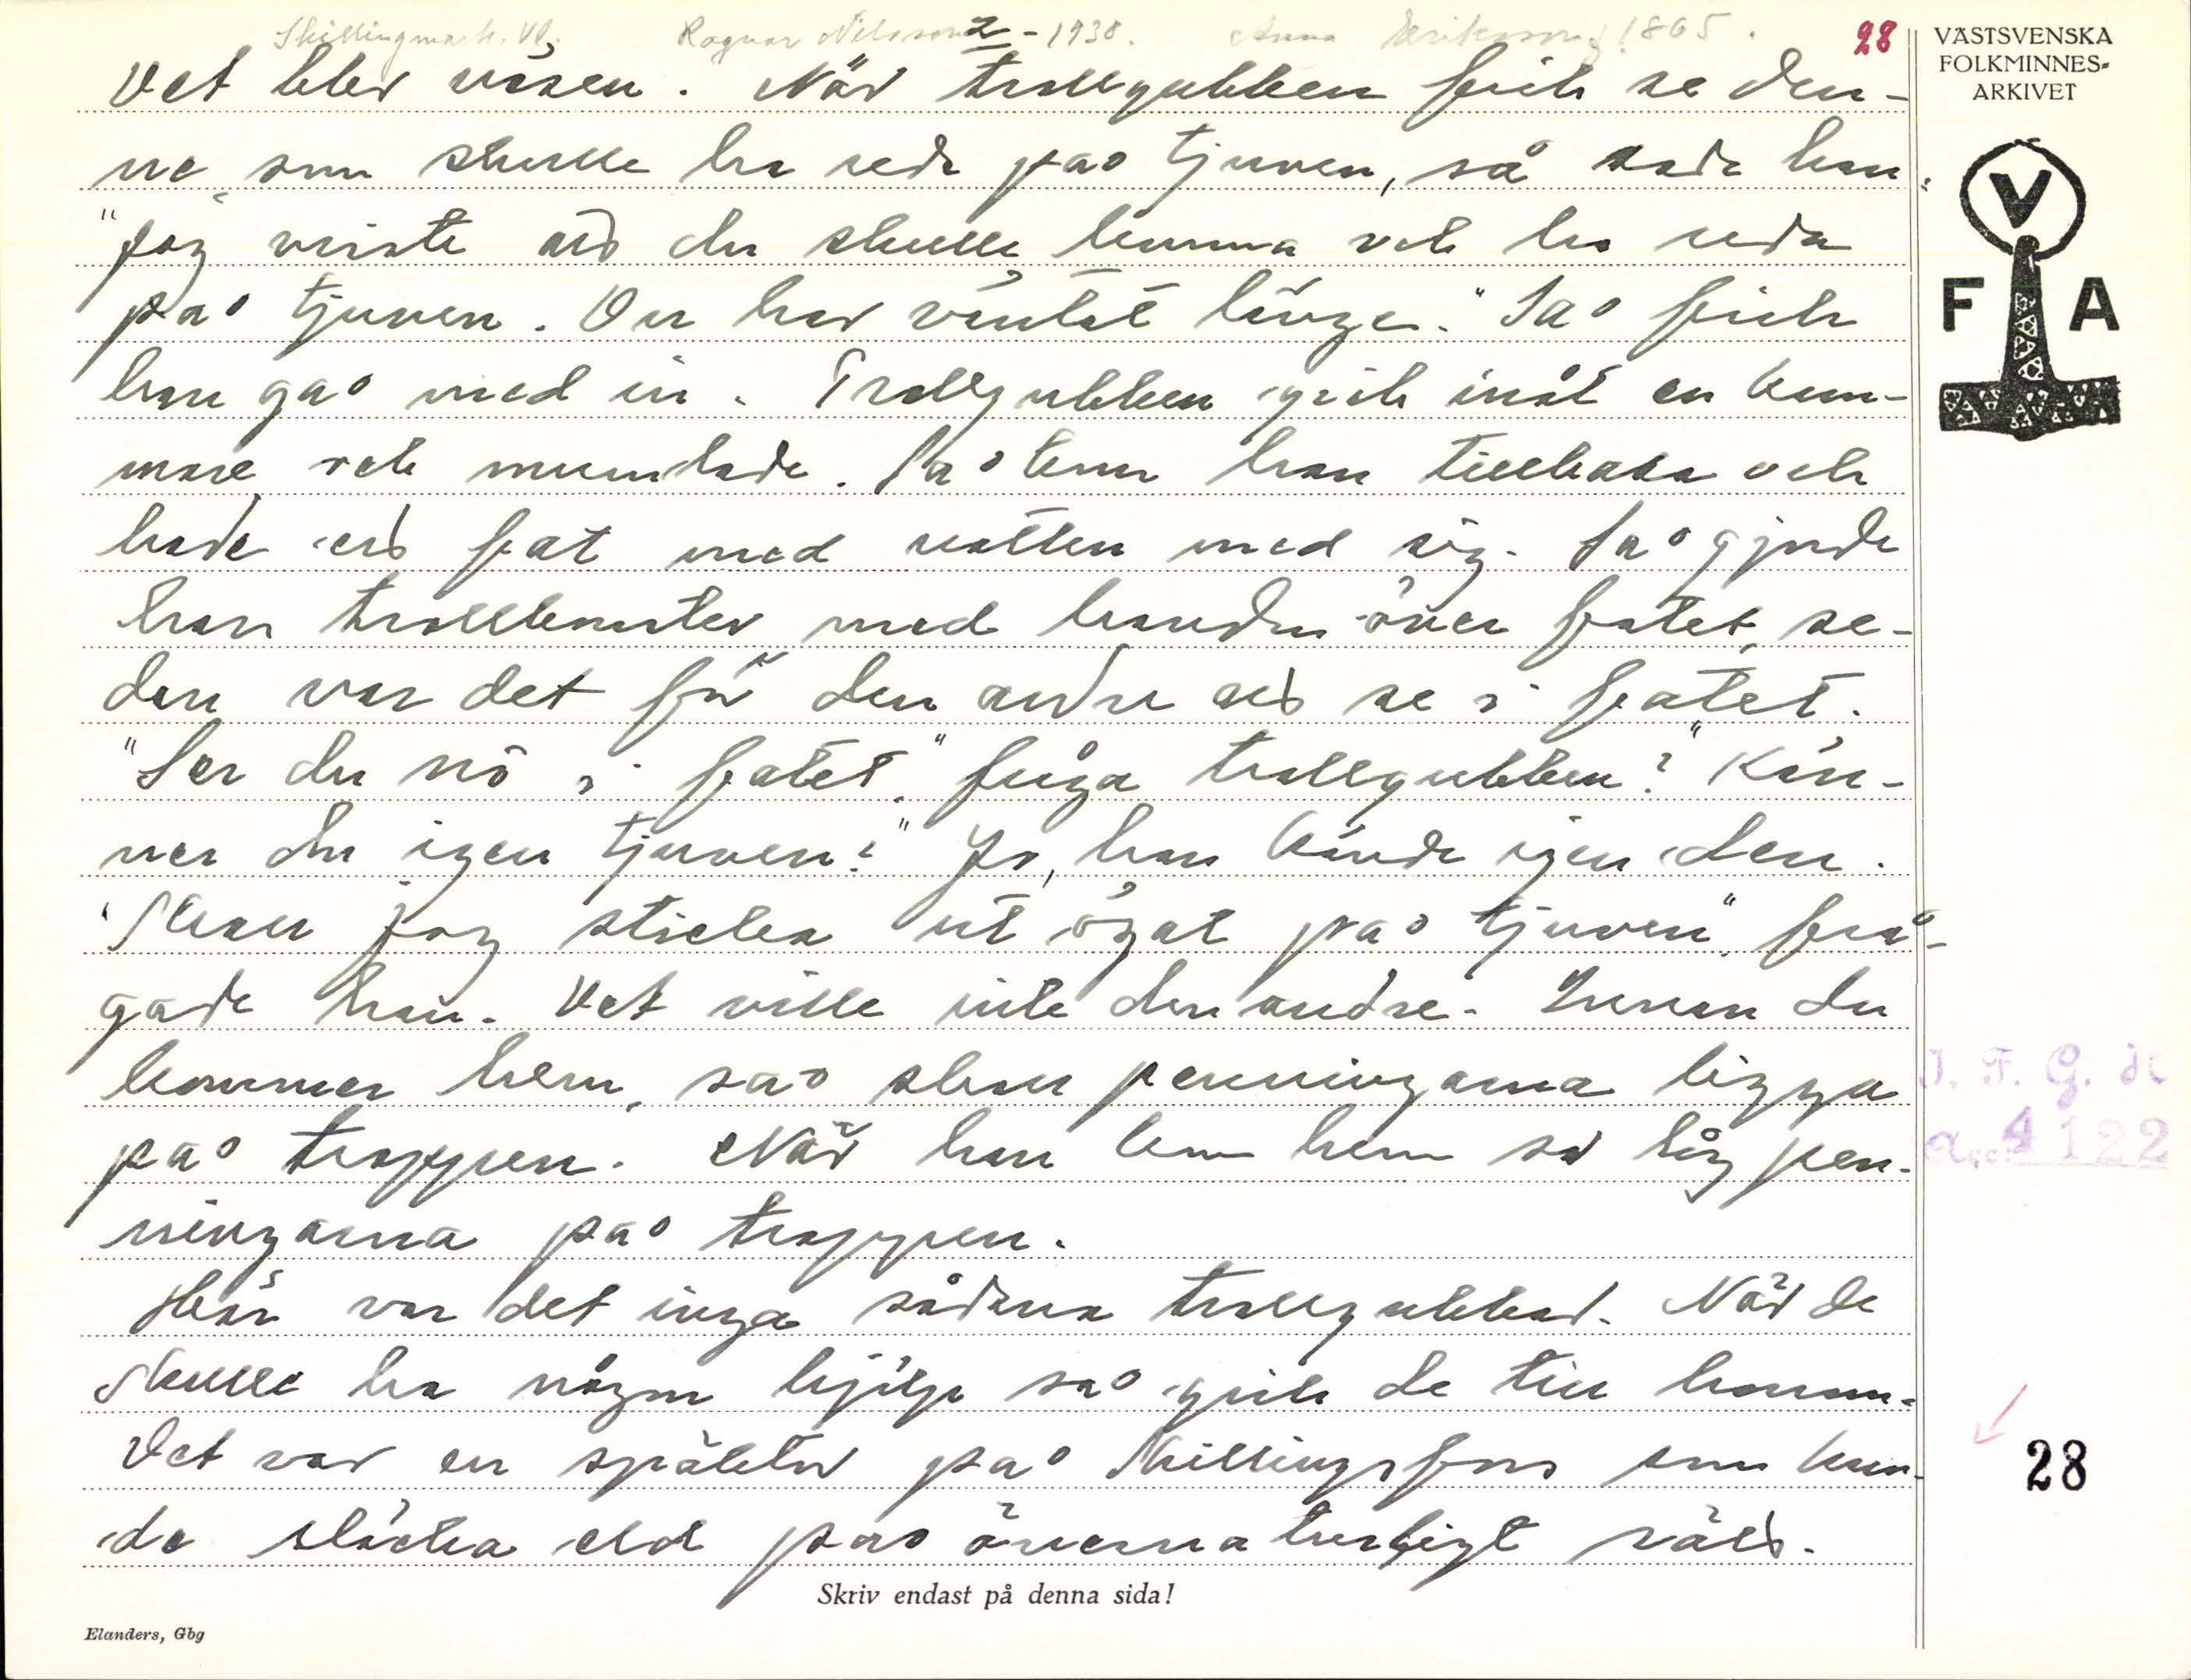 Skillingmark. Vl. Ragnar Nilsson 2 - 1938. Anna Eriksson f. 1865. 28
VÄSTSVENSKA
FOLKMINNES-
ARKIVET
V
F A
Det blev väsen. När trollgubben fick se den-
ne, som skulle ha reda på tjuven, så sade han:
"Jag visste att du skulle komma och ha reda
på tjuven. Du har väntat länge." Så fick
han gå med in. Trollgubben gick inåt en kam-
mare och mumlade. Så kom han tillbaka och
hade ett fat med vatten med sig. Så gjorde
han trollkonster med handen över fatet, se-
dan var det för den andre att se i fatet.
"Ser du nå i fatet," fråga trollgubben? "Kän-
ner du igen tjuven?" Jo, han kände igen den.
"Skall jag sticka ut ögat på tjuven", frå-
gade han. Det ville inte den andre. Innan du
kommer hem, så skall penningarna ligga
på trappen. När han kom hem så låg pen-
ningarna på trappen.
Här var det inga sådana trollgubbar. När de
skulle ha någon hjälp så gick de till honom.
Det var en inspektor på Skillingsfors som kun-
de släcka eld på övernaturligt sätt.
J. F. G. H
acc. 4122
28
Skriv endast på denna sida!
Elanders, Gbg